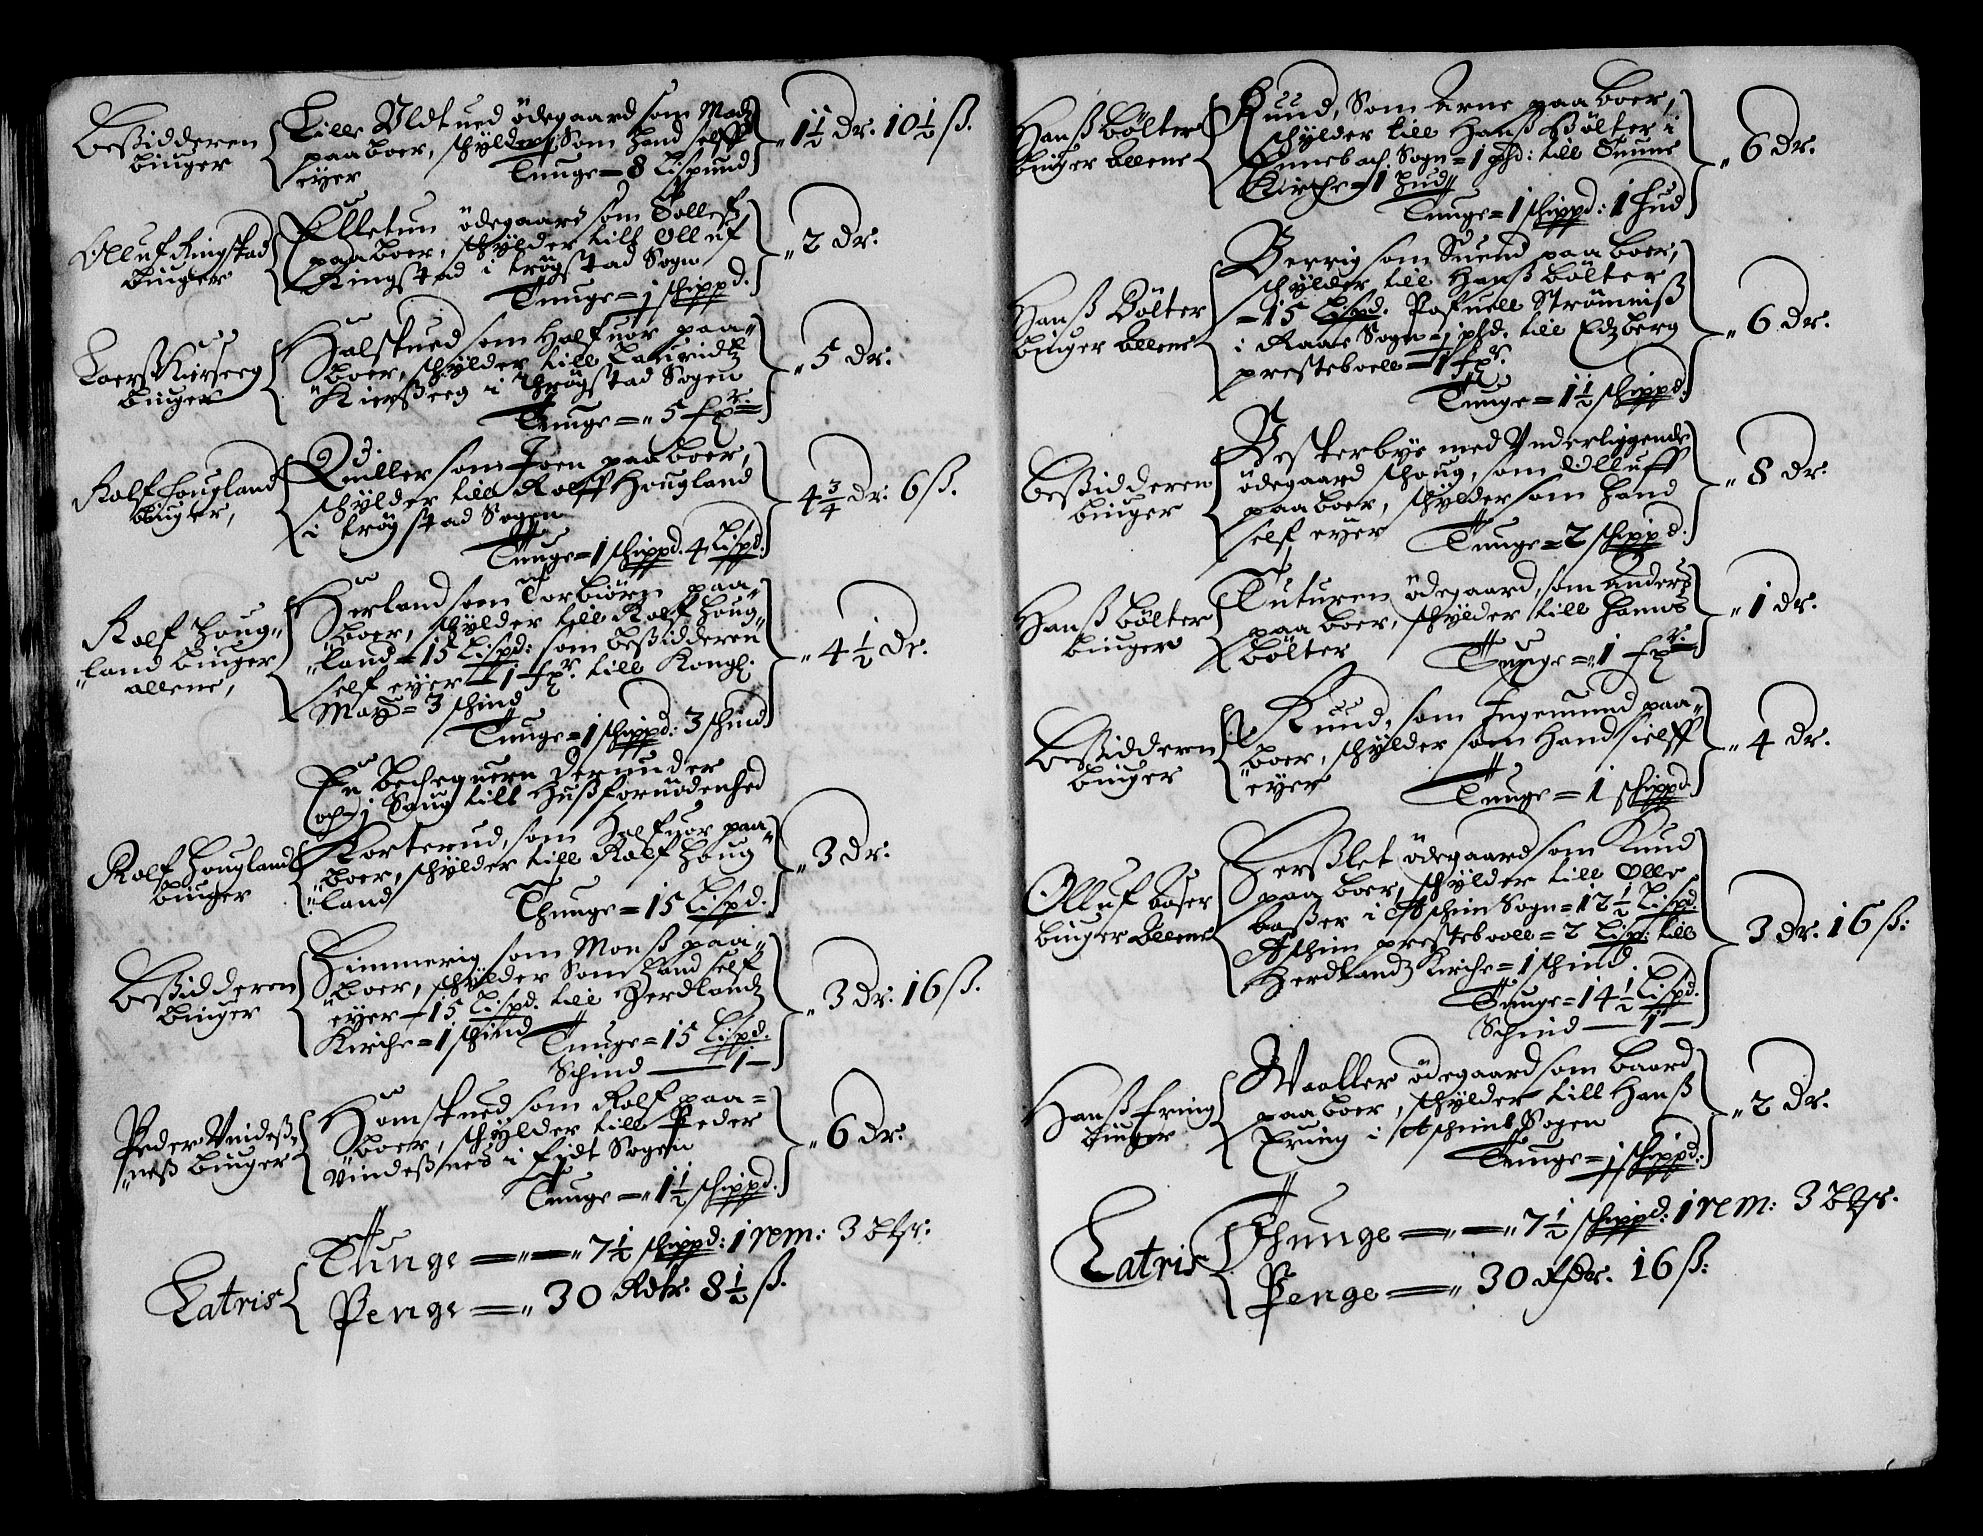 Beßidderen
biuger
Lille Uldtued ödegaard som Madz
paaboer, schylder som hand selff
eyer
Tunge = 8 Lispund
1½ dr. 10½ ß.
Olluf Ringstad
biuger
Elletun ödegaard som Tolleff
paaboer, schylder till Olluf
Ringstad i trögstad Sogn
Tunge = j schippd.
2 dr.
Laerß Kierseeg
biuger
Halstued som Halfuor paa-
boer, schylder till Lauridtz
Kierßeeg i Thrögstad Sogen
Tunge = 5 fr.
5 dr.
Rolf Hougland
biuger,
Quiller som Joen paaboer,
schylder till Rolff Hougland
i trögstad Sogen
Tunge = 1 schippd. 4 Lispd.
4¾ dr. 6 ß.
Rolf Houg-
land biuger
allene,
Herland som Torbiörn paa-
boer, schylder till Rolf Houg-
land = 15 Lispd: som beßidderen
self eyer = 1 fr. till Kongl.
Mayt = 3 schind
Tunge = 1 schippd: 3 schind
4½ dr.
En bechequern derunder
och j Saug till Hußfornödenhed
Rolf Hougland
biuger
Korterud, som Halfuor paa-
boer, schylder till Rolf Houg-
land
Thunge = 15 Lispd.
3 dr.
Beßidderen
biuger
Himmerig som Monß paa-
boer, schylder Som Hand self
eyer = 15 Lispd. till Herdlandtz
Kirche = 1 schind
Tunge = 15 Lispd.
Schind — 1 —
3 dr. 16 ß.
Peder Vindeß-
neß biuger
Homstued som Rolf paa-
boer, schylder till Peder
Vindeßnes i Eydt Sogen
Tunge = 1½ schippd.
6 dr.
Latris
Tunge = 7½ schippd: 1 rem: 3
Penge = 30 Rdr. 8½ ß.
Hanß Bölter
biuger Allene
Ruud, Som Arne paaboer,
schylder till Hanß Bölter i
Sogn = 1 phd: till
Kirche = 1 Hud
Tunge = 1 schippd: 1 Hud
6 dr.
Hanß Bölter
biuger Allene
Berrig som Suend paaboer,
schylder till Hanß Bölter
= 15 Lispd. Pofuell Strömniß
i Raae Sogn = j phd. till Edzberg
presteboell = 1 fr.
Tunge = 1½ schippd.
6 dr.
Beßidderen
biuger
Vesterbye med Underliggende
ödegaard schoug, som Olluff
paaboer, schylder som hand
self eyer
Tunge = 2 schippd.
8 dr.
Hanß Bölter
biuger
Tuturen ödegaard, som Anderß
paaboer, schylder till Hannß
Bölter
Tunge = 1 fr.
1 dr.
Beßidderen
biuger
Ruud, som Ingemund paa-
boer, schylder som Hand sielff
eyer
Tunge = 1 schippd.
4 dr.
Olluf baßer
biuger Allene
Herßlet ödegaard som Knud
paaboer, schylder till Olle
baßer i Aschim Sogn = 12½ Lispd.
Aschim presteboell = 2 Lisp: till
Herdlandz Kirche = 1 schind
Tunge = 14½ Lispd.
Schind — 1 —
3 dr. 16 ß:
Hanß Ering
biuger
Waaller ödegaard som baard
paaboer, schylder till Hanß
Ering i Aschimb Sogen
Tunge = j schippd:
2 dr.
Latris
Thunge = 7½ schippd: 1 rem: 3
Penge = 30 Rdr. 16 ß: